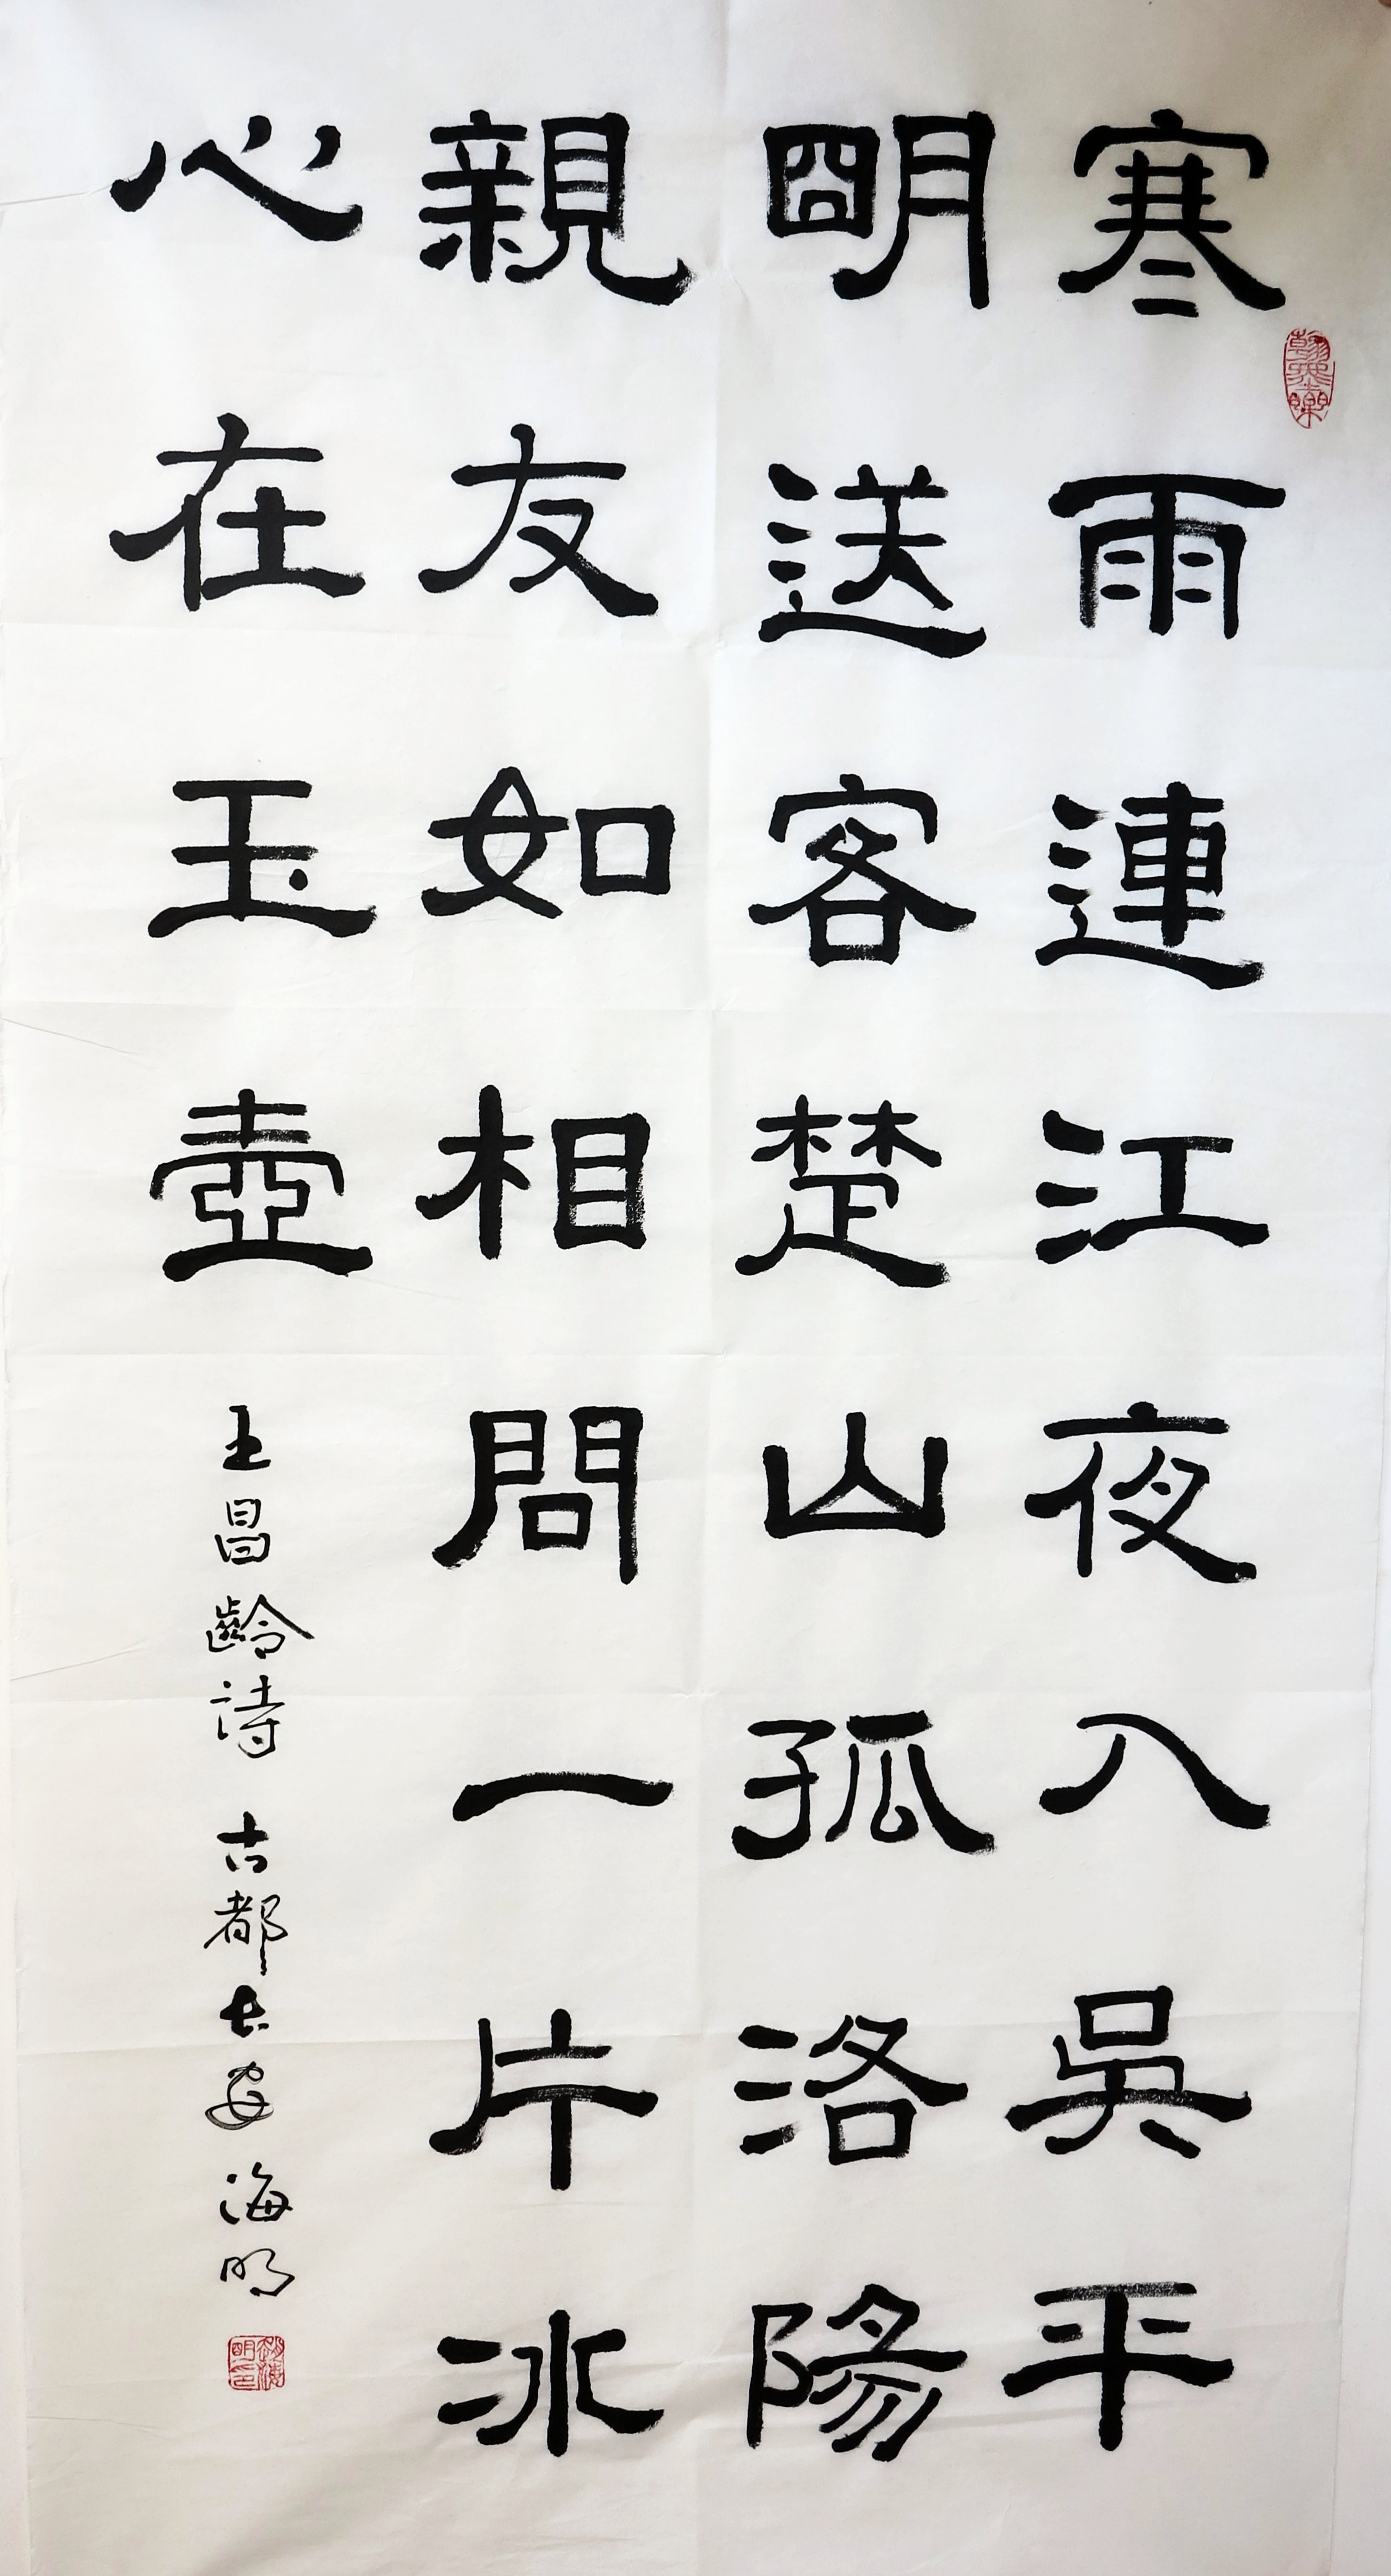 寒雨連江夜入吳平
明送客楚山孤洛陽
親友如相問一片冰
心在玉壺
王昌齡詩 古都長安 海明